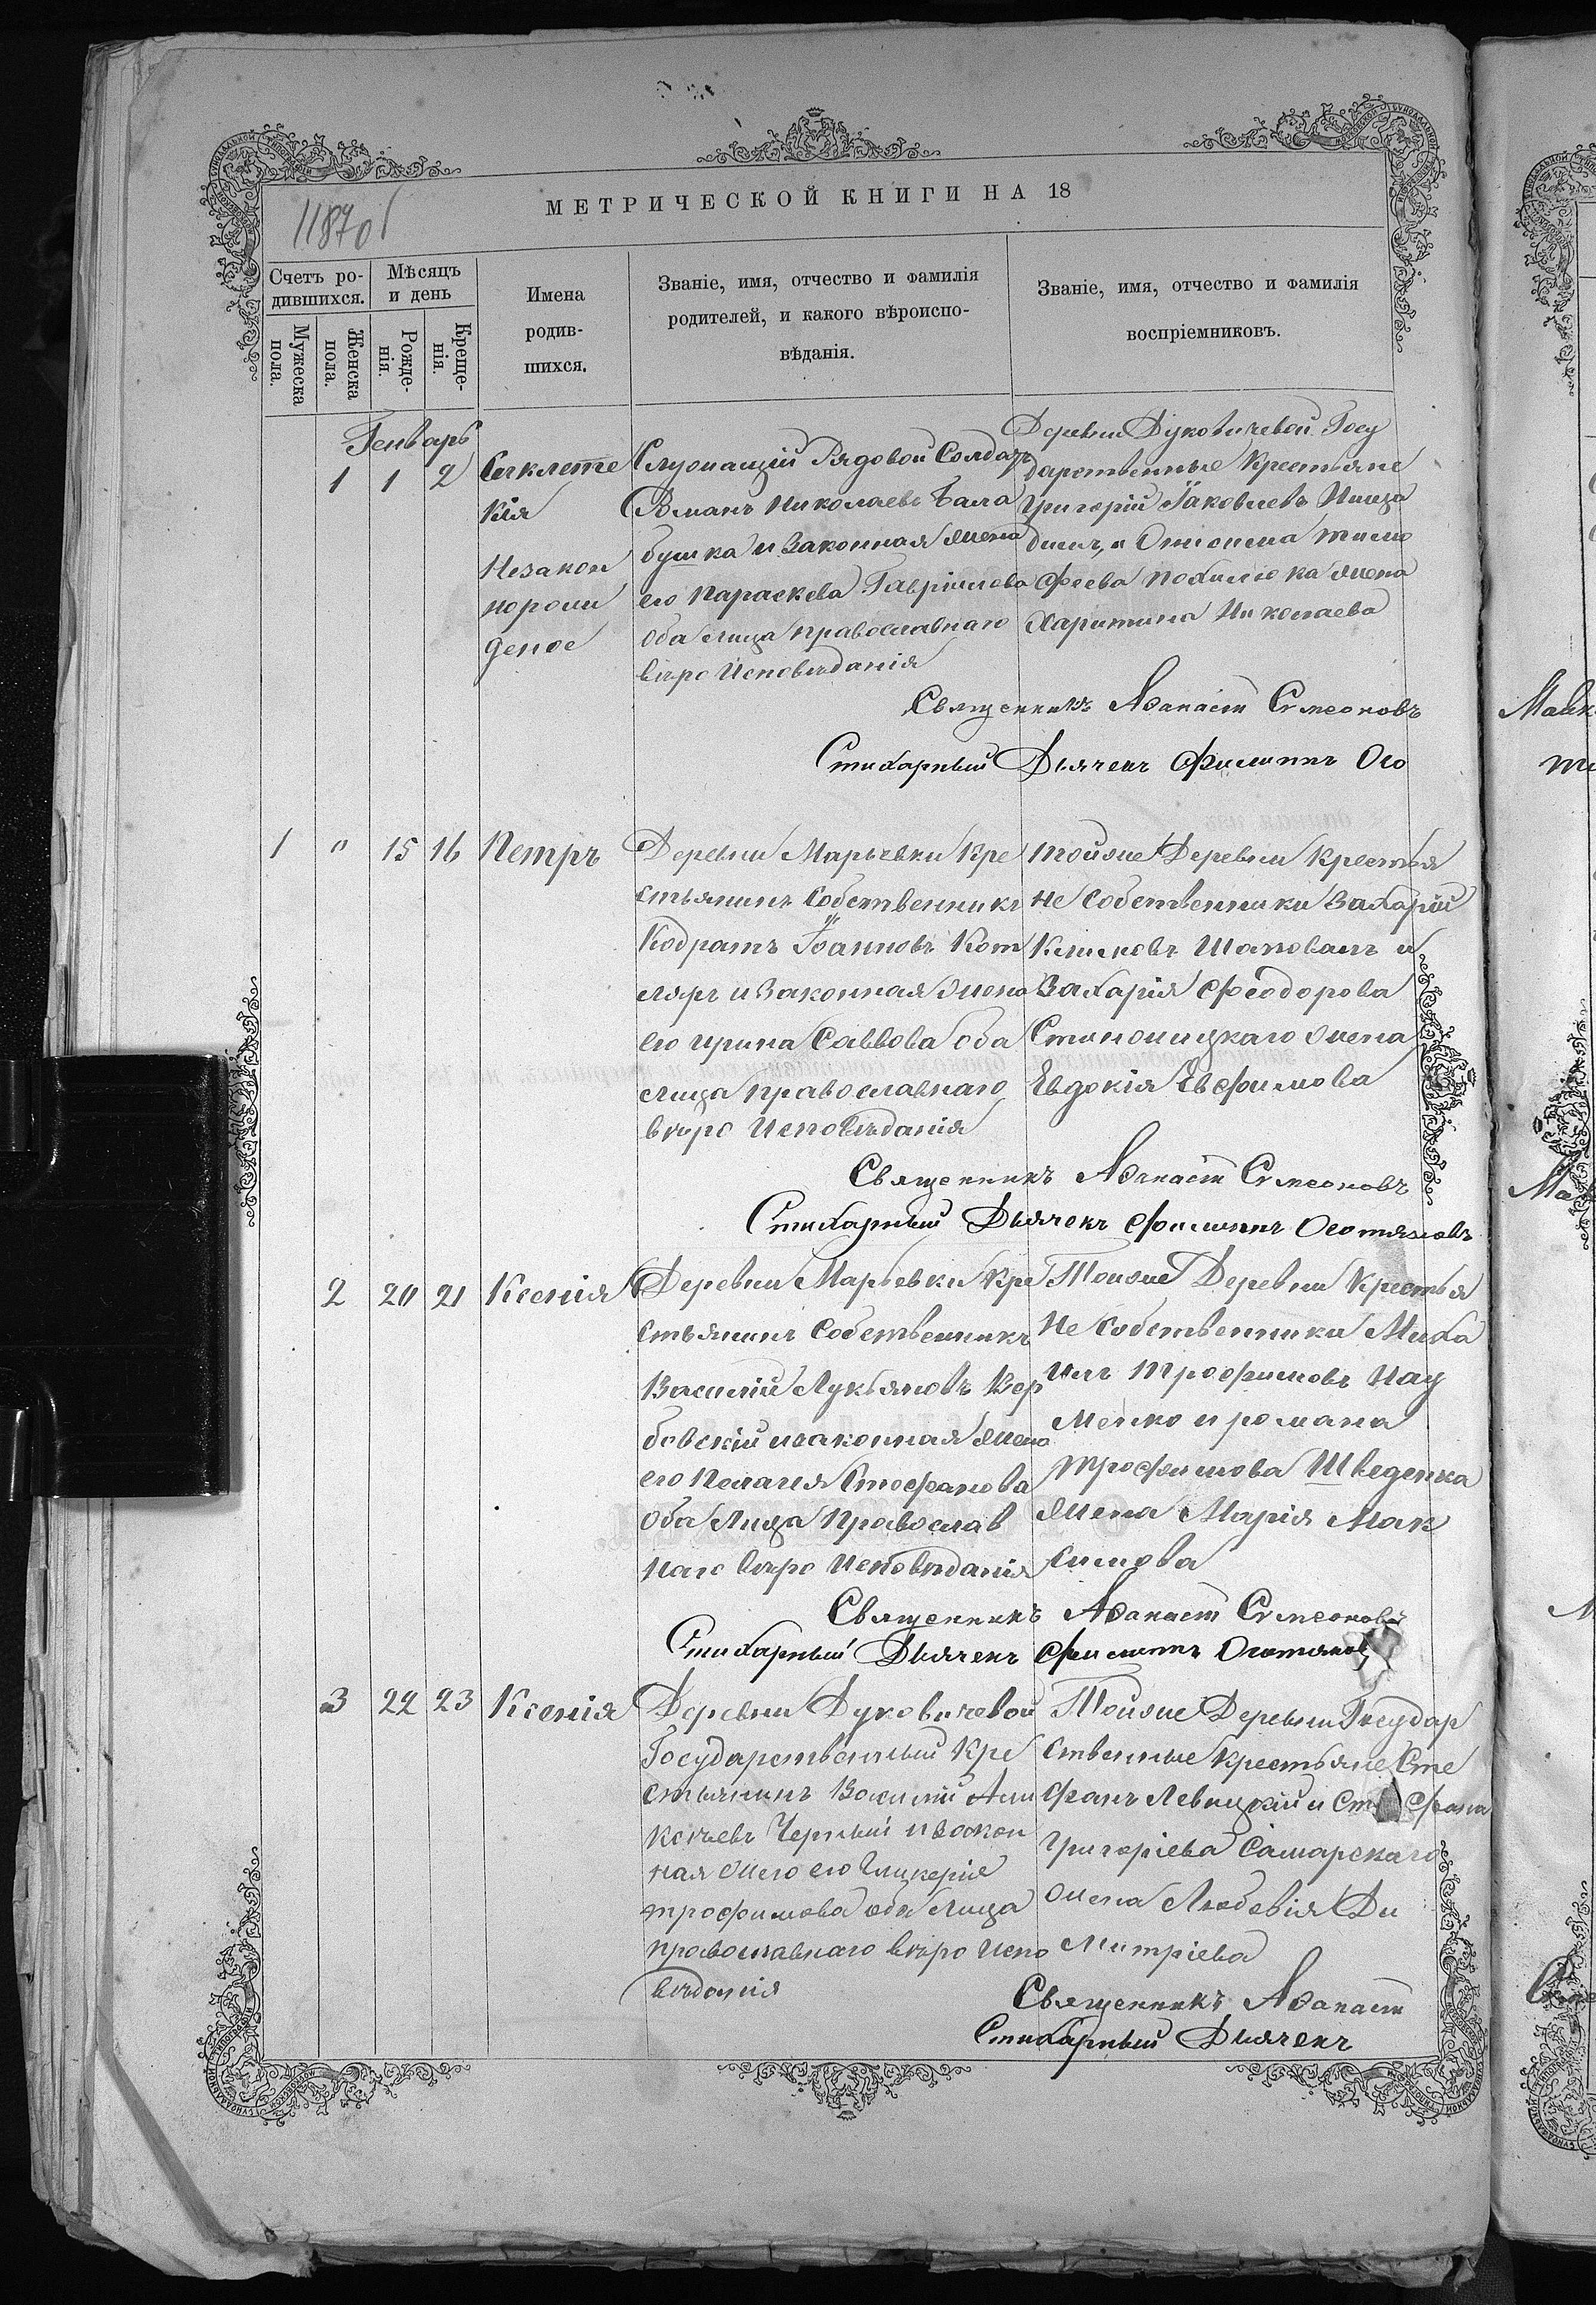 МЕТРИЧЕСКОЙ КНИГИ НА 18
1187об
Счетъ ро-
дившихся.
Мѣсяцъ
и день
Мужеска
пола.
Женска
пола.
Рожде-
нія.
Креще-
нія.
Имена
родив-
шихся.
Званіе, имя, отчество и фамилія
родителей, и какого вѣроиспо-
вѣданія.
Званіе, имя, отчество и фамилія
воспріемниковъ.
Генварь
1 1 2
Сѵклите
кія
Незакон
норож
деное
Служащій Рядовой Солдатъ
Романъ Николаевъ Бала
бушка и Законная жена
его Параскева Гавріилова
оба лица православнаго
вѣро Исповѣданія
Деревни Дуковичевой Госу
дарственные Крестьяне
Григорій Іаковлевъ
Тимо
феева жена
Харитина Николаева
Священникъ Аѳанасій Симеоновъ
Стихарный Дьячекъ Филиппъ
1 " 15 16 Петръ
Деревни Марьевки Кре
стьянинъ Собственникъ
Кодратъ Іоанновъ Кот
ляръ и Законная жена
его Ирина Саввова оба
лица православнаго
вѣро Исповѣданія
тойже Деревни Крестья
не Собственники Захарій
Шаповалъ и
Захарія Феодорова
жена
Евдокія Евфимова
Священникъ Аѳанасій Симеоновъ
Стихарный Дьячекъ Филиппъ
2 20 21 Ксенія
Деревни Марьевки Кре
стьянинъ Собственникъ
Василій Лукьяновъ Вер
бовскій и законная жена
его Пелагия Стефанова
Оба Лица Православ
наго вѣро Исповѣданія
Тойже Деревни Крестья
не Собственники Миха
илъ Трофимовъ Нау
менко и романа
Трофимова Шведенка
жена Марія Мак
симова
Священникъ Аѳанасій Симеоновъ
Стихарный Дьячекъ Филиппъ
3 22 23 Ксенія
Деревни Дуковичевой
Государственный Кре
стьянинъ Василій Ани
кіевъ Черный и закон
ная жена его Гликерія
трофимова оба Лица
православнаго вѣро Испо
вѣданія
Тойже Деревни Государ
ственные Крестьяне Сте
фанъ Левицкій и
Григоріева Самарскаго
жена Любовія Ди
митріева
Священникъ Аѳанасій
Стихарный Дьячекъ